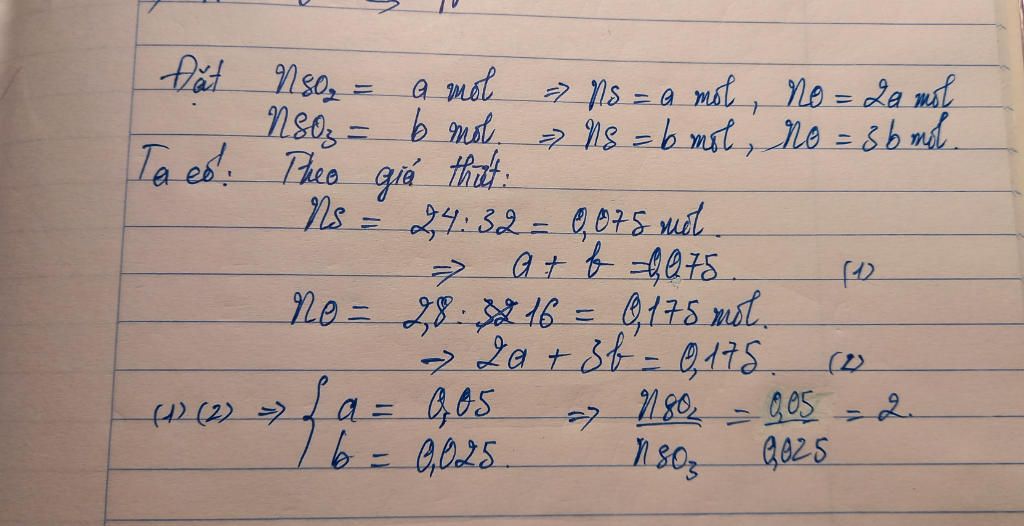 Đặt nSO₂ = a mol ⇒ nS = a mol, nO = 2a mol
nSO₃ = b mol. ⇒ nS = b mol, nO = 3b mol.
Ta có: Theo giả thiết:
nS = 2,4 : 32 = 0,075 mol.
⇒ a + b = 0,075. (1)
nO = 2,8 : 16 = 0,175 mol.
→ 2a + 3b = 0,175. (2)
(1) (2) ⇒ { a = 0,05 ⇒ nSO₂/nSO₃ = 0,05/0,025 = 2.
b = 0,025.